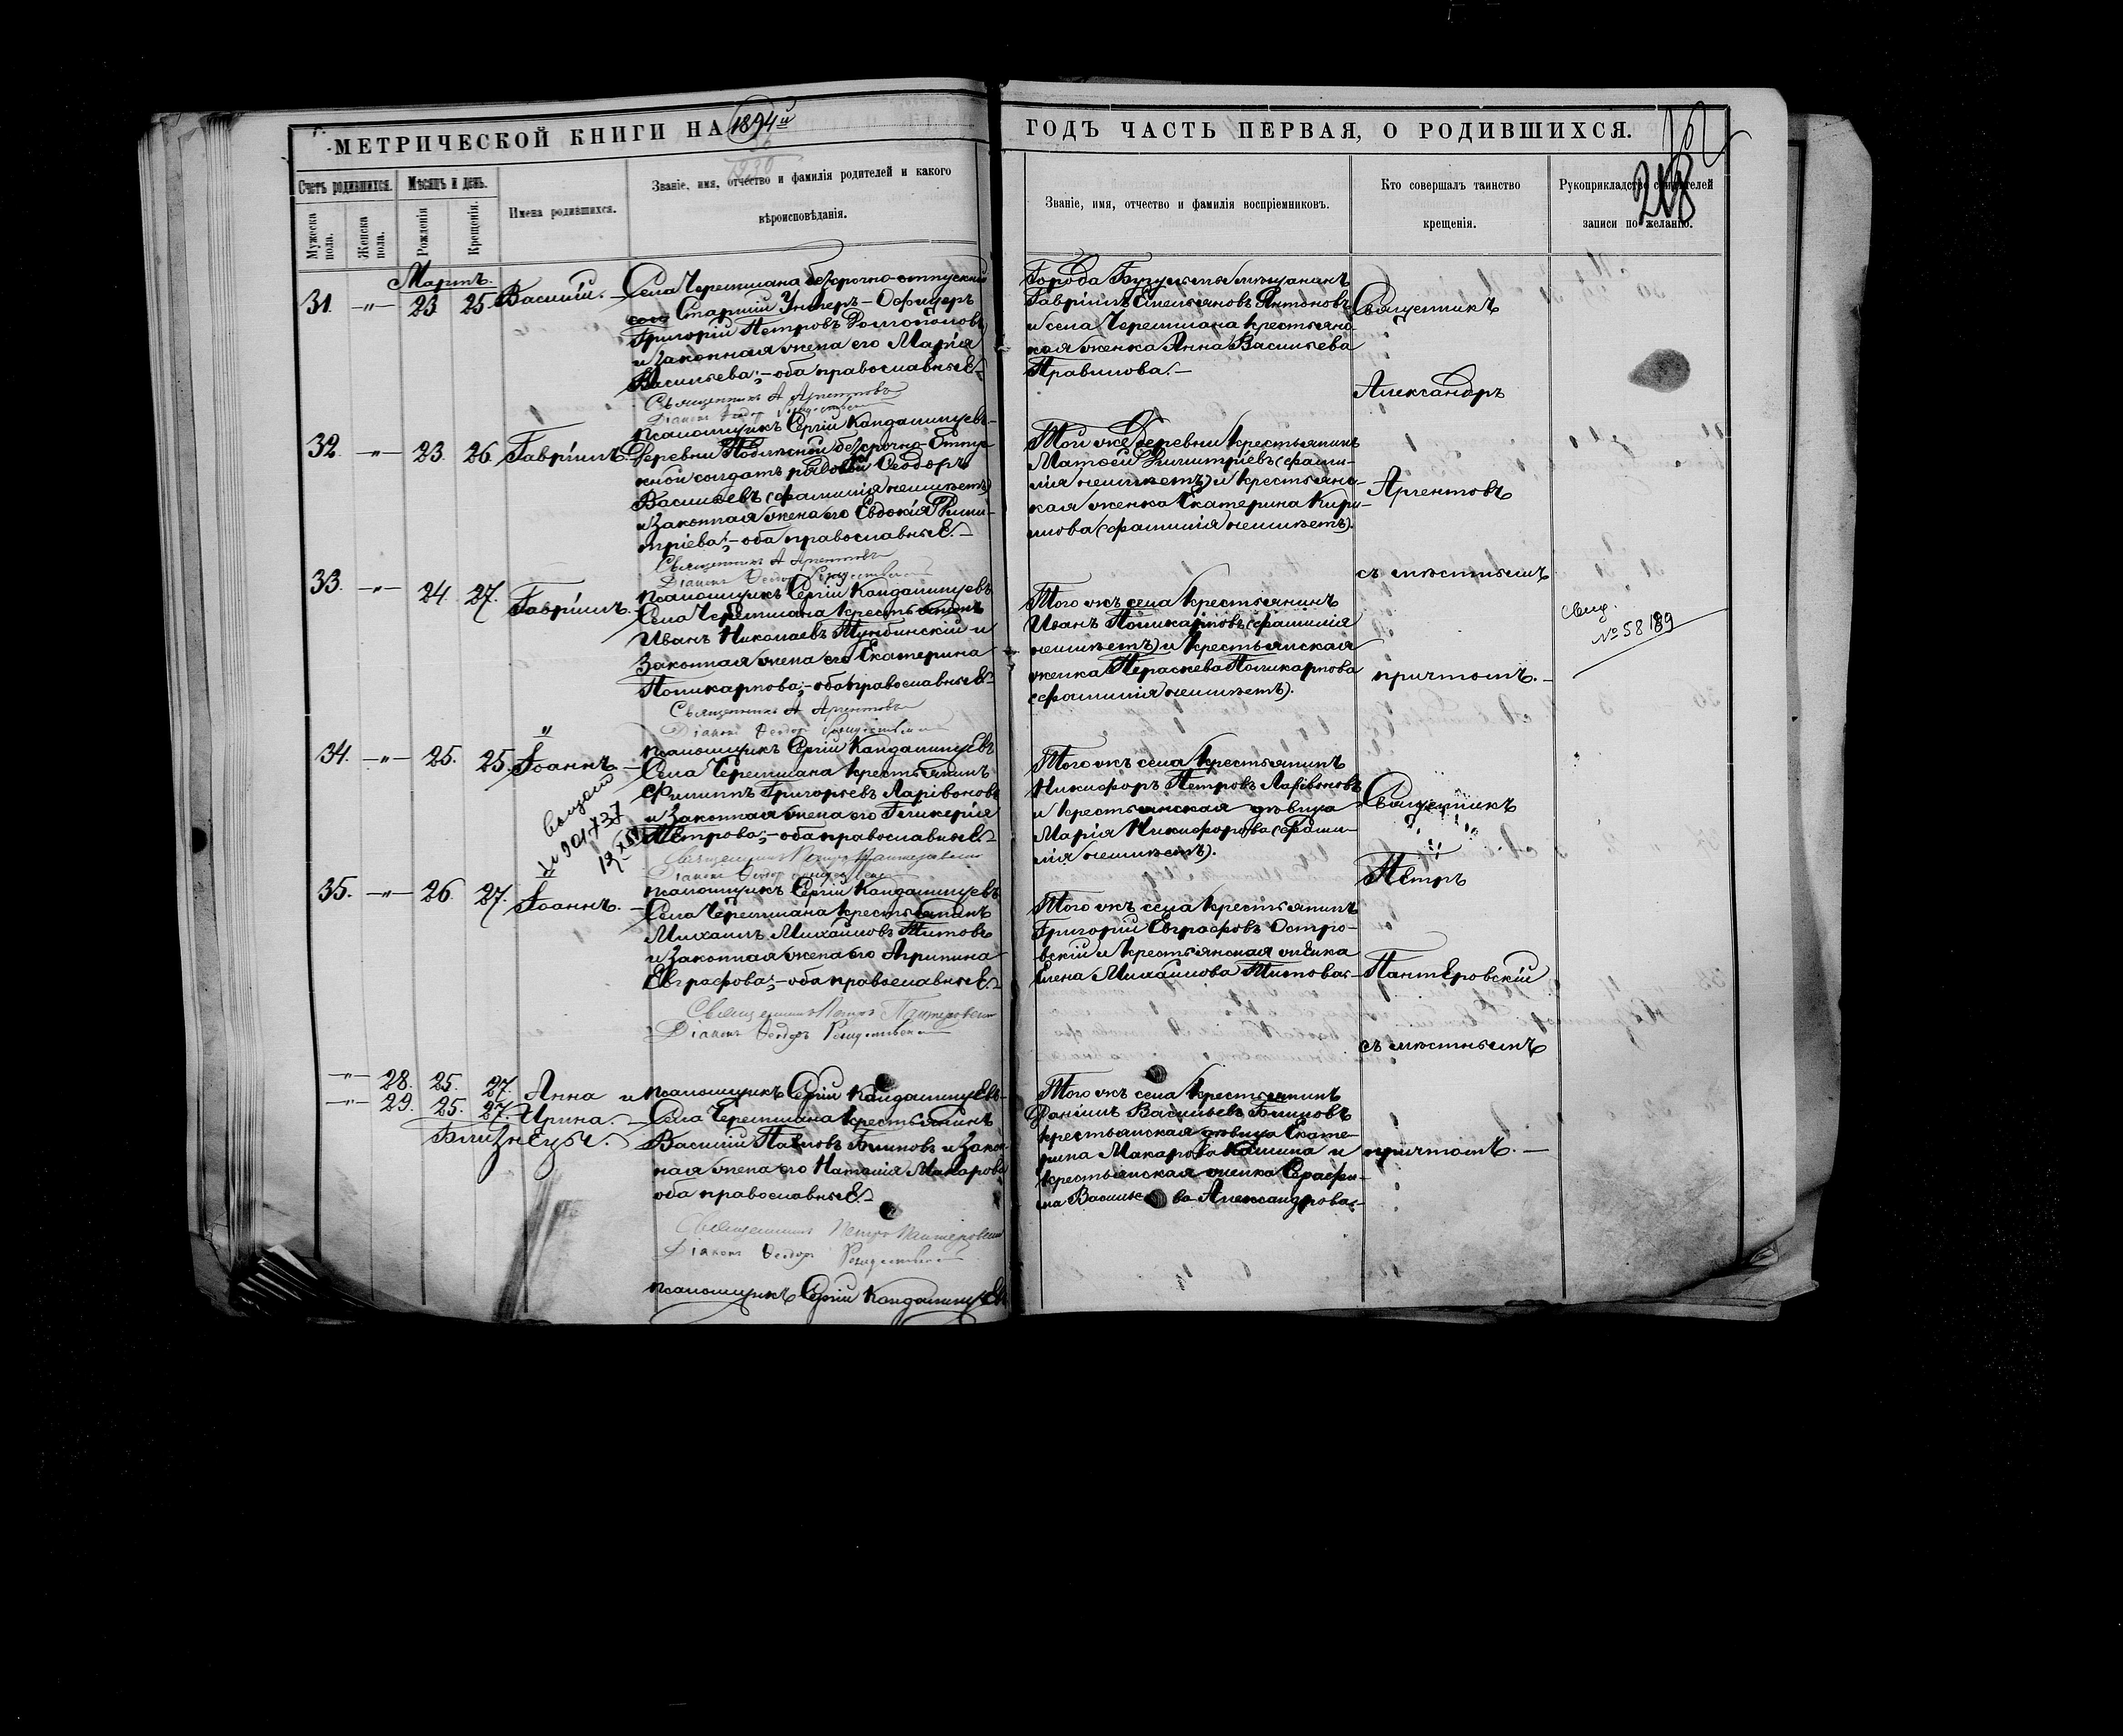 МЕТРИЧЕСКОЙ КНИГИ НА 1894й
ГОДЪ ЧАСТЬ ПЕРВАЯ, О РОДИВШИХСЯ.
218
Счетъ родившихся.
Мужеска пола.
Женска пола.
Мѣсяцъ и день.
Рожденія
Крещенія.
Имена родившихся.
Званіе, имя, отчество и фамилія родителей и какого
вѣроисповѣданія.
Званіе, имя, отчество и фамилія воспріемниковъ.
Кто совершалъ таинство
крещенія.
Рукоприкладство свидѣтелей
записи по желанію.
Мартъ.
31. —"— 23. 25. Василій. —
Села Черемшана безсрочно-отпускный
Старшій Унтеръ-Офицеръ
Григорій Петровъ
и законная жена его Марія
Васильева; — оба православные. —
Священникъ А Аргентовъ
Діаконъ Ѳеодоръ
псаломщикъ Сергій Кандалинцевъ. —
Города Бугульмы мѣщанинъ
Гавріилъ Емельяновъ Антоновъ
и села Черемшана крестьянс-
кая женка Анна Васильева
Правилова. —
Священникъ
Александръ
Аргентовъ
съ мѣстнымъ
причтомъ. —
32. —"— 23. 26. Гавріилъ. —
Деревни безсрочно-отпус-
кной солдатъ рядовой Ѳеодоръ
Васильевъ (фамилія не имѣетъ)
и законная жена его Евдокія Дими-
тріева; — оба православные. —
Священникъ А Аргентовъ
Діаконъ Ѳеодоръ
псаломщикъ Сергій Кандалинцевъ
Той же деревни крестьянинъ
Матѳей Димитріевъ (фами-
лія не имѣетъ) и крестьянс-
кая женка Екатерина Кири-
лова (фамилія не имѣетъ).
33. —"— 24. 27. Гавріилъ. —
Села Черемшана крестьянинъ
Иванъ Николаевъ Тумбинскій и
законная жена его Екатерина
Поликарпова; — оба православные. —
Священникъ А Аргентовъ
Діаконъ Ѳеодоръ
псаломщикъ Сергій Кандалинцевъ
Того жъ села крестьянинъ
Иванъ Поликарповъ (фамилія
не имѣетъ) и крестьянская
женка Параскева Поликарпова
(фамилія не имѣетъ).
№ 58189
34. —"— 25. 25. Іоаннъ. —
Села Черемшана крестьянинъ
Филиппъ Григорьевъ Ларивоновъ
и законная жена его Гликерія
Петрова; — оба православные. —
Священникъ Петръ Пантеровскій
Діаконъ Ѳеодоръ
псаломщикъ Сергій Кандалинцевъ
Того жъ села крестьянинъ
Никифоръ Петровъ Ларивоновъ
и крестьянская дѣвица
Марія Никифорова (фами-
лія не имѣетъ).
Священникъ
Петръ
Пантеровскій
съ мѣстнымъ
причтомъ. —
35. —"— 26. 27. Іоаннъ. —
Села Черемшана крестьянинъ
Михаилъ Михайловъ Титовъ
и законная жена его Агрипина
Евграфова; — оба православные. —
Священникъ Петръ Пантеровскій
Діаконъ Ѳеодоръ
псаломщикъ Сергій Кандалинцевъ. —
Того жъ села крестьянинъ
Григорій Евграфовъ Остро-
вскій и крестьянская женка
Елена Михайлова Титова. —
—"— 28. 25. 27. Анна и
—"— 29. 25. 27. Ирина. —
Близнецы.
Села Черемшана крестьянинъ
Василій Павловъ Блиновъ и закон-
ная жена его Наталія Макарова
оба православные. —
Священникъ Петръ Пантеровскій
Діаконъ Ѳеодоръ
псаломщикъ Сергій Кандалинцевъ
Того жъ села крестьянинъ
Даніилъ Васильевъ Блиновъ
крестьянская дѣвица Екате-
рина Макарова Кашина и
крестьянская женка Серафи-
ма Васильева Александрова. —